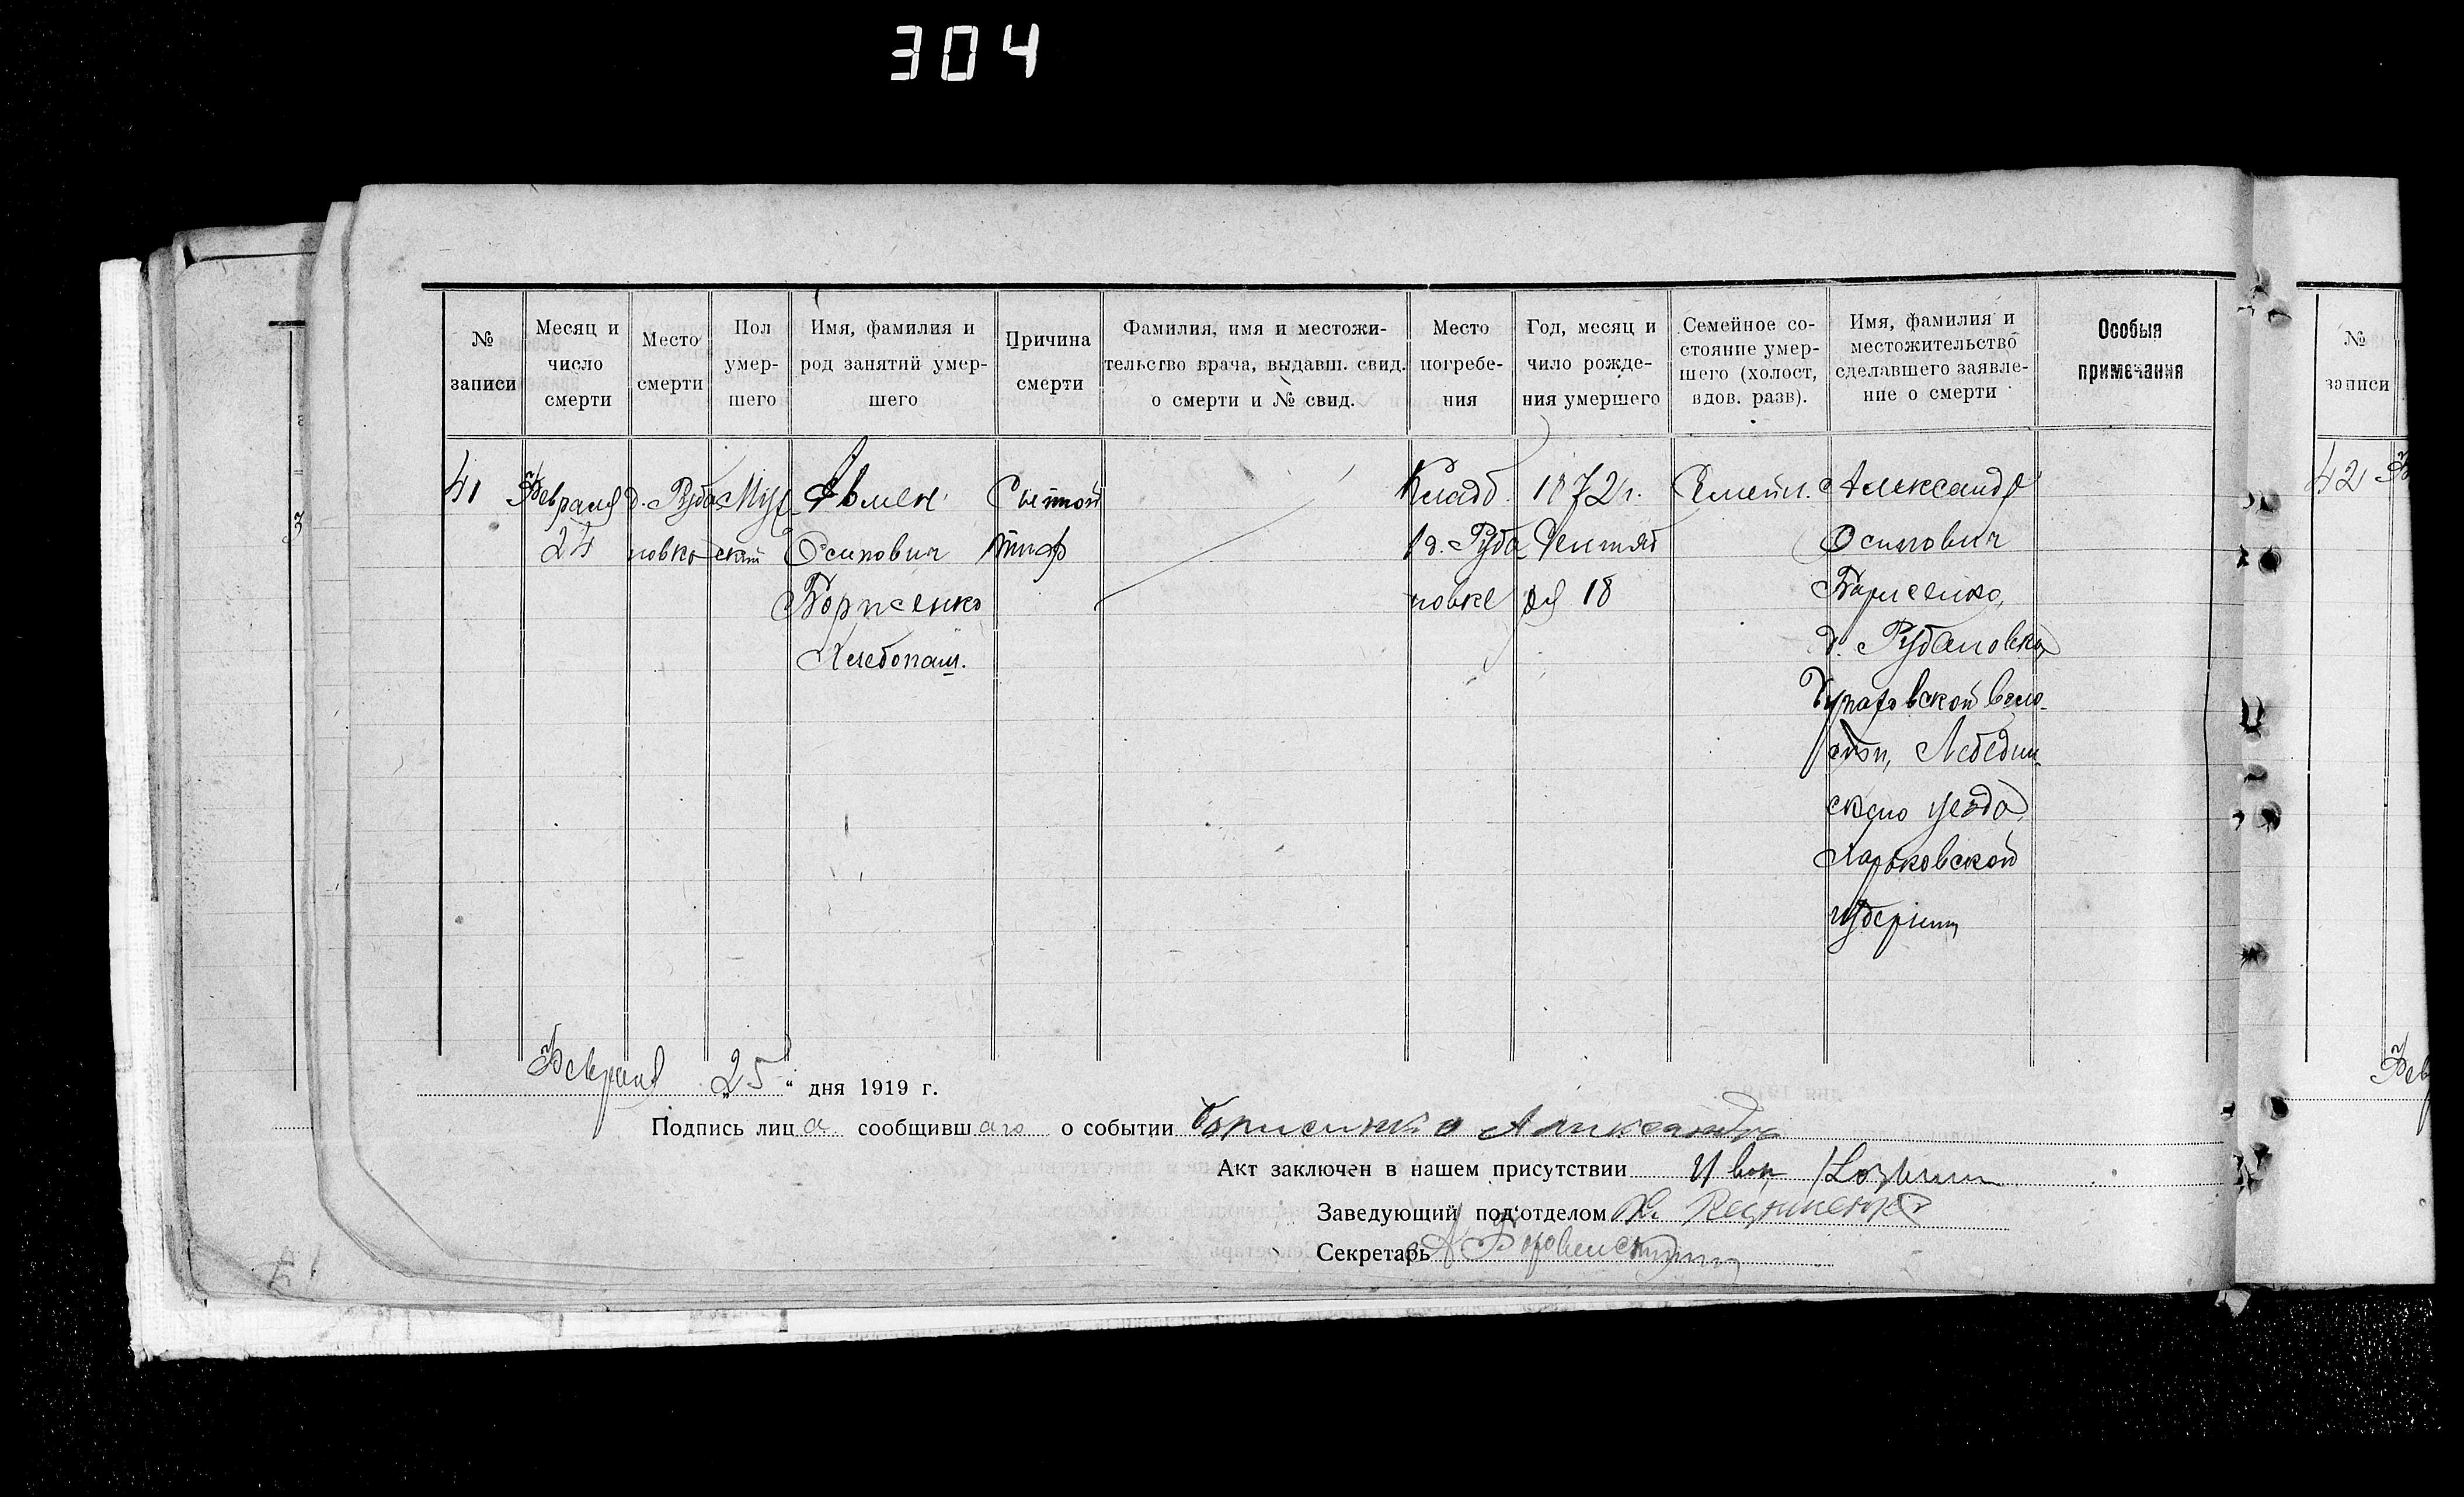 304
№ записи
Месяц и число смерти
Место смерти
Пол умер- шего
Имя, фамилия и род занятий умер- шего
Причина смерти
Фамилия, имя и местожи- тельство врача, выдавш. свид. о смерти и № свид.
Место погребе- ния
Год, месяц и чило рожде- ния умершего
Семейное со- стояние умер- шего (холост, вдов. разв).
Имя, фамилия и местожительство сделавшего заявле- ние о смерти
Особыя примечания
№ записи
41
Февраля
24
д. Руба
новка
Муж
ской
Осипович
Борисенко
Хлебопаш.
Сыпной
тиф
Кладб.
д. Руба
новке
1872 г.
Сентяб
ря 18
Семейн.
Александр
Осипович
Борисенко,
д. Рубановка
волo-
сти, Лебедин-
ского уезда
Харьковской
губернии
42
Февраля „25“ дня 1919 г.
Подпись лица сообщившаго о событии Борисенко Александр
Акт заключен в нашем присутствии
Заведующий под‘отделом
Секретарь
Фев